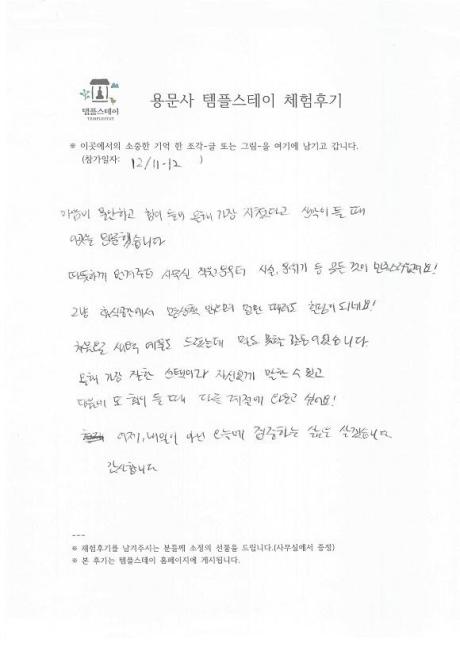 템플스테이
TEMPLESTAY
용문사 템플스테이 체험후기
※ 이곳에서의 소중한 기억 한 조각-글 또는 그림-을 여기에 남기고 갑니다.
(참가일자: 12/11-12 )
마음이 불안하고 힘이 들어 올해 가장 지쳤다고 생각이 들 때
이곳을 방문했습니다
따뜻하게 반겨주신 사무실 직원분부터 시설, 분위기 등 모든 것이 만족스러웠어요!
그냥 휴식공간에서 만 멍 때려도 힐링이 되네요!
처음으로 새벽 예불도 드렸는데 감동이었습니다
올해 가장 잘한 선택이라 자신있게 말할 수 있고
다음에 또 힘이 들 때 다른 계절에 오고 싶어요!
어제, 내일이 아닌 오늘에 집중하는 삶을 살겠습니다
감사합니다
---
※ 체험후기를 남겨주시는 분들께 소정의 선물을 드립니다.(사무실에서 증정)
※ 본 후기는 템플스테이 홈페이지에 게시됩니다.